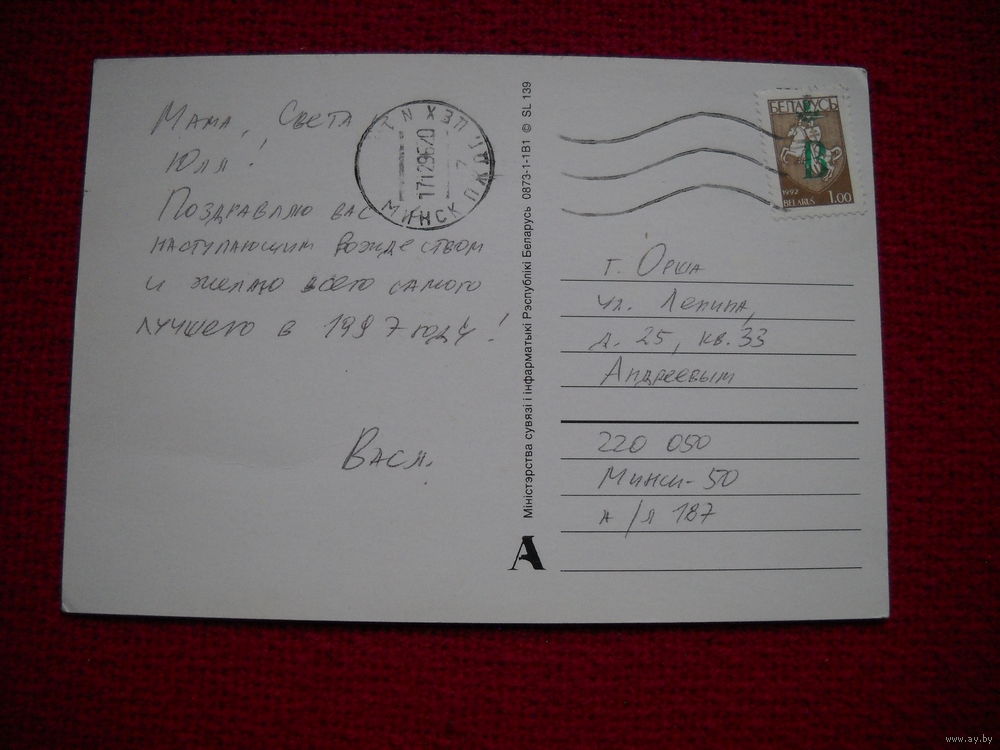 Мама, Света
Юля!
Поздравляю вас
наступающим Рождеством
и желаю всего самого
лучшего в 1997 году!
Вася.
МИНСК
Міністэрства сувязі і інфарматыкі Рэспублікі Беларусь 0873-1-1B1 © SL 139
БЕЛАРУСЬ
B
1992
BELARUS
1.00
г. Орша
ул. Ленина,
д. 25, кв. 33
Андреевым
220 050
Минск-50
а/я 187
A
www.ay.by